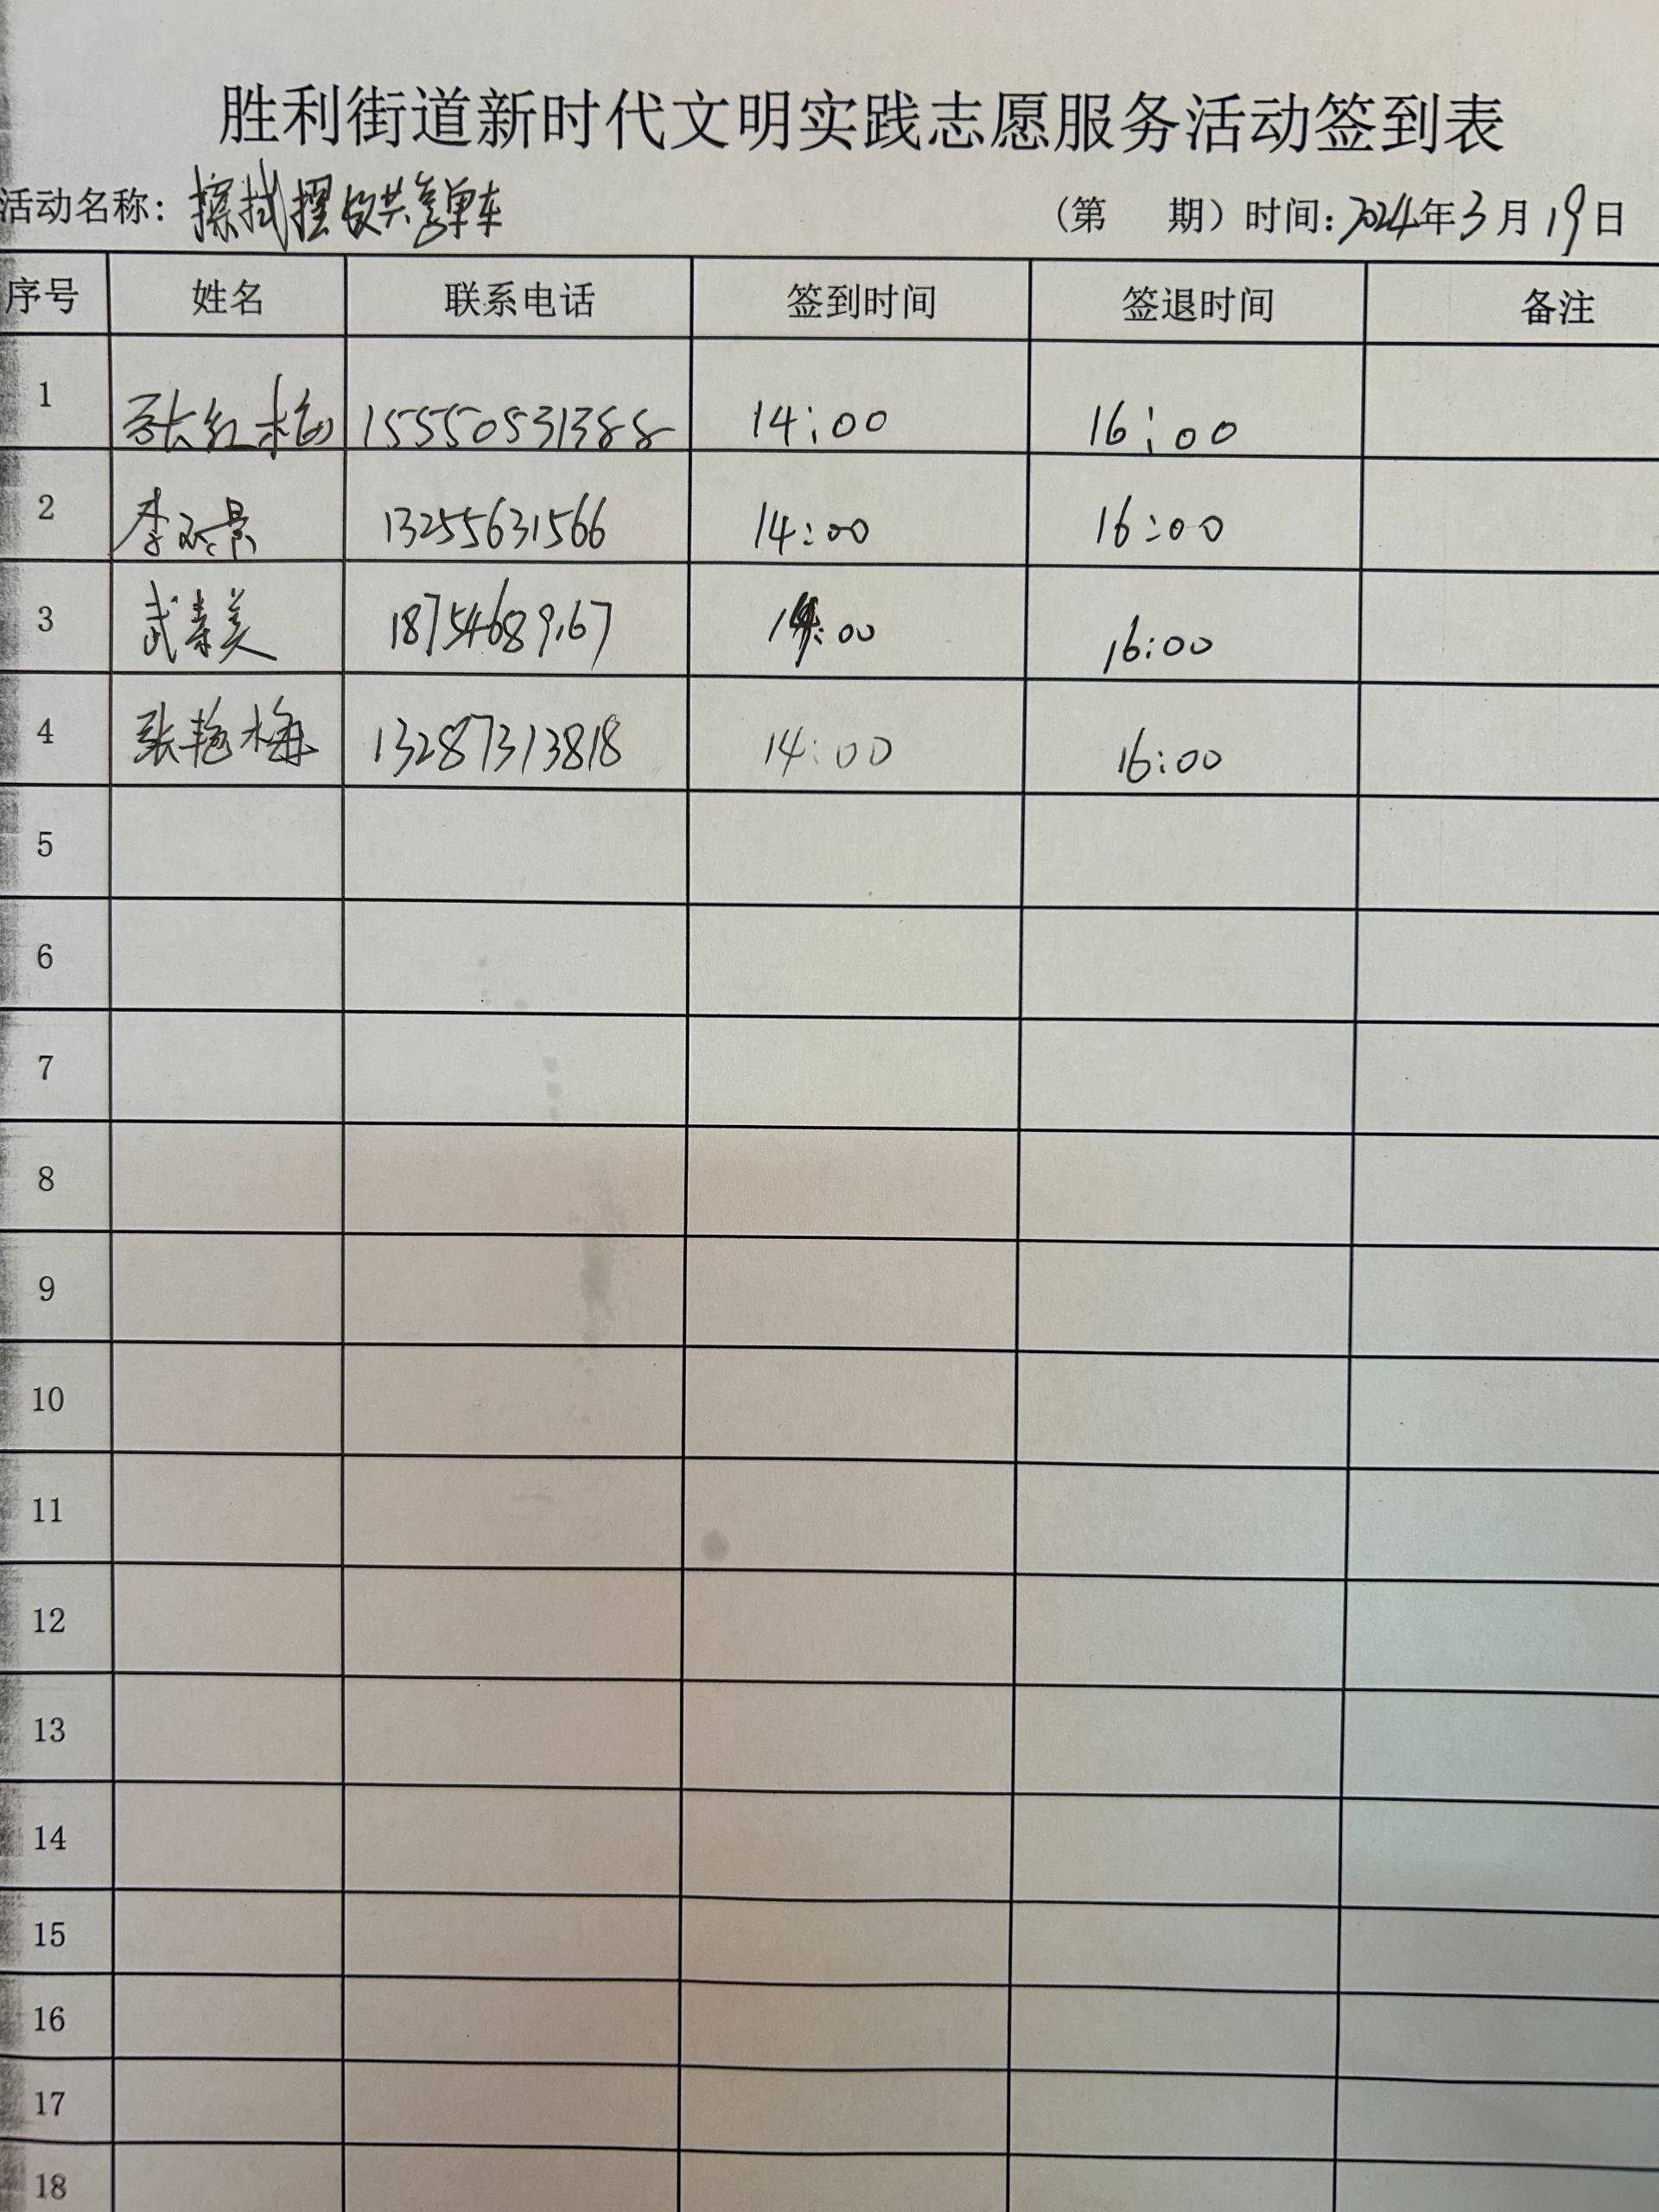 胜利街道新时代文明实践志愿服务活动签到表
活动名称: 擦拭摆放共享单车 (第 期) 时间: 2024年3月19日
序号 姓名 联系电话 签到时间 签退时间 备注
1 张红梅 15550531388 14:00 16:00
2 李 景 13255631566 14:00 16:00
3 武秦美 18754689167 14:00 16:00
4 张艳梅 13287313818 14:00 16:00
5
6
7
8
9
10
11
12
13
14
15
16
17
18